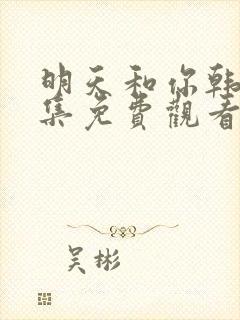 明天和你韩
集免費觀看
吴彬